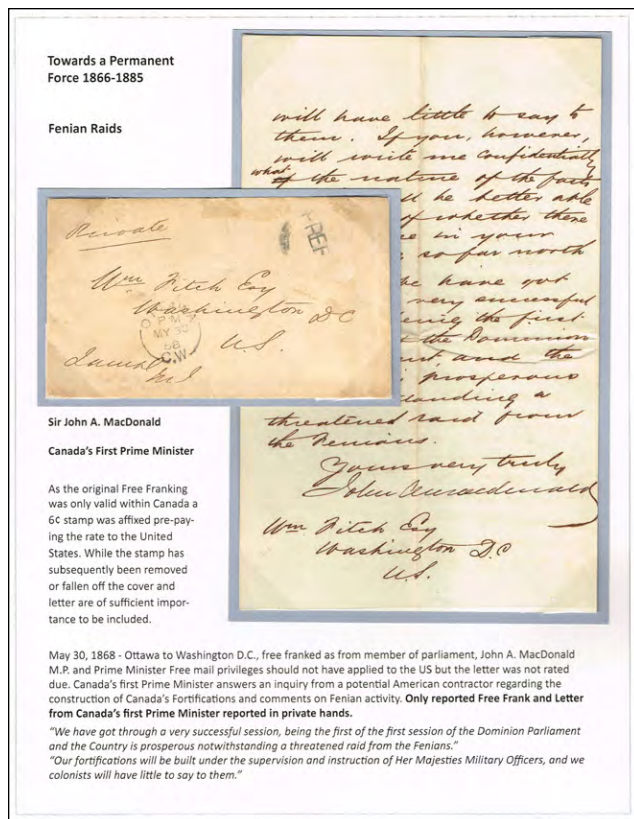 Towards a Permanent
Force 1866-1885
Fenian Raids
will have little to say to
them. If you, however,
will write me confidentially
what
of the nature of the facts
ll be better able
of whether there
in your
so far north
he have got
very successful
being the first
the Dominion
and the
prosperous
anding a
threatened raid from
the Fenians.
Yours very truly
John A Macdonald
Wm Fitch Esq
Washington D.C
U.S.
Private
FREE
Wm Fitch Esq
Washington DC
U.S.
PM
MY 30
68
C.W.
Sir John A. MacDonald
Canada's First Prime Minister
As the original Free Franking
was only valid within Canada a
6¢ stamp was affixed pre-pay-
ing the rate to the United
States. While the stamp has
subsequently been removed
or fallen off the cover and
letter are of sufficient impor-
tance to be included.
May 30, 1868 - Ottawa to Washington D.C., free franked as from member of parliament, John A. MacDonald
M.P. and Prime Minister Free mail privileges should not have applied to the US but the letter was not rated
due. Canada's first Prime Minister answers an inquiry from a potential American contractor regarding the
construction of Canada's Fortifications and comments on Fenian activity. Only reported Free Frank and Letter
from Canada's first Prime Minister reported in private hands.
"We have got through a very successful session, being the first of the first session of the Dominion Parliament
and the Country is prosperous notwithstanding a threatened raid from the Fenians."
"Our fortifications will be built under the supervision and instruction of Her Majesties Military Officers, and we
colonists will have little to say to them."